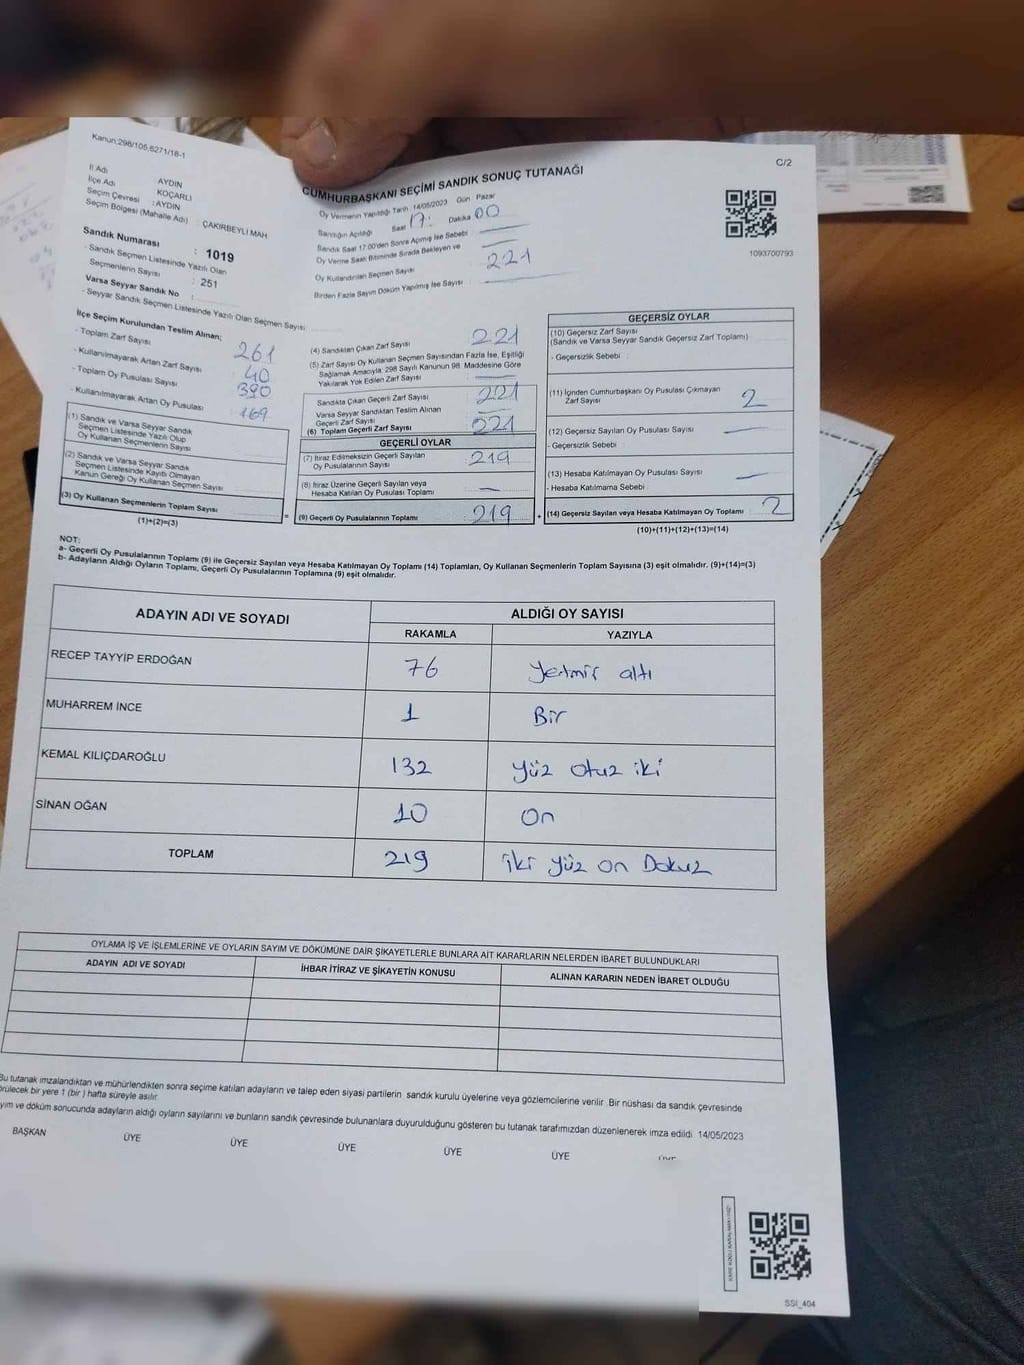 Kanun;298/105,6271/18-1
C/2
CUMHURBAŞKANI SEÇİMİ SANDIK SONUÇ TUTANAĞI
İl Adı AYDIN
İlçe Adı KOÇARLI
Seçim Çevresi :AYDIN
Seçim Bölgesi (Mahalle Adı) : ÇAKIRBEYLİ MAH
Sandık Numarası : 1019
- Sandık Seçmen Listesinde Yazılı Olan
Seçmenlerin Sayısı : 251
Varsa Seyyar Sandık No :
- Seyyar Sandık Seçmen Listesinde Yazılı Olan Seçmen Sayısı :
Oy Vermenin Yapıldığı Tarih :14/05/2023 Gün Pazar
Sandığın Açılışı Saat 17: Dakika 00
Sandık Saat 17.00'den Sonra Açılmış İse Sebebi
Oy Verme Saati Bitiminde Sırada Bekleyen ve
Oy Kullandırılan Seçmen Sayısı 221
Birden Fazla Sayım Döküm Yapılmış İse Sayısı :
1093700793
İlçe Seçim Kurulundan Teslim Alınan;
- Toplam Zarf Sayısı 261
- Kullanılmayarak Artan Zarf Sayısı : 40
- Toplam Oy Pusulası Sayısı 390
- Kullanılmayarak Artan Oy Pusulası : 169
(1) Sandık ve Varsa Seyyar Sandık
Seçmen Listesinde Yazılı Olup
Oy Kullanan Seçmenlerin Sayısı
(2) Sandık ve Varsa Seyyar Sandık
Seçmen Listesinde Kayıtlı Olmayan
Kanun Gereği Oy Kullanan Seçmen Sayısı
(3) Oy Kullanan Seçmenlerin Toplam Sayısı
(1)+(2)=(3)
(4) Sandıktan Çıkan Zarf Sayısı 221
(5) Zarf Sayısı Oy Kullanan Seçmen Sayısından Fazla İse, Eşitliği
Sağlamak Amacıyla, 298 Sayılı Kanunun 98. Maddesine Göre
Yakılarak Yok Edilen Zarf Sayısı :
Sandıkta Çıkan Geçerli Zarf Sayısı 221
Varsa Seyyar Sandıktan Teslim Alınan
Geçerli Zarf Sayısı
(6) Toplam Geçerli Zarf Sayısı 221
GEÇERLİ OYLAR
(7) İtiraz Edilmeksizin Geçerli Sayılan
Oy Pusulalarının Sayısı 219
(8) İtiraz Üzerine Geçerli Sayılan veya
Hesaba Katılan Oy Pusulası Toplamı
(9) Geçerli Oy Pusulalarının Toplamı 219
GEÇERSİZ OYLAR
(10) Geçersiz Zarf Sayısı
(Sandık ve Varsa Seyyar Sandık Geçersiz Zarf Toplamı)
- Geçersizlik Sebebi :
(11) İçinden Cumhurbaşkanı Oy Pusulası Çıkmayan
Zarf Sayısı 2
(12) Geçersiz Sayılan Oy Pusulası Sayısı
- Geçersizlik Sebebi :
(13) Hesaba Katılmayan Oy Pusulası Sayısı
- Hesaba Katılmama Sebebi :
(14) Geçersiz Sayılan veya Hesaba Katılmayan Oy Toplamı : 2
(10)+(11)+(12)+(13)=(14)
NOT:
a- Geçerli Oy Pusulalarının Toplamı (9) ile Geçersiz Sayılan veya Hesaba Katılmayan Oy Toplamı (14) Toplamları, Oy Kullanan Seçmenlerin Toplam Sayısına (3) eşit olmalıdır. (9)+(14)=(3)
b- Adayların Aldığı Oyların Toplamı, Geçerli Oy Pusulalarının Toplamına (9) eşit olmalıdır.
ADAYIN ADI VE SOYADI ALDIĞI OY SAYISI
RAKAMLA YAZIYLA
RECEP TAYYİP ERDOĞAN 76 Yetmiş altı
MUHARREM İNCE 1 Bir
KEMAL KILIÇDAROĞLU 132 yüz otuz iki
SİNAN OĞAN 10 On
TOPLAM 219 iki yüz on Dokuz
OYLAMA İŞ VE İŞLEMLERİNE VE OYLARIN SAYIM VE DÖKÜMÜNE DAİR ŞİKAYETLERLE BUNLARA AİT KARARLARIN NELERDEN İBARET BULUNDUKLARI
ADAYIN ADI VE SOYADI İHBAR İTİRAZ VE ŞİKAYETİN KONUSU ALINAN KARARIN NEDEN İBARET OLDUĞU
Bu tutanak imzalandıktan ve mühürlendikten sonra seçime katılan adayların ve talep eden siyasi partilerin sandık kurulu üyelerine veya gözlemcilerine verilir. Bir nüshası da sandık çevresinde
bir yere 1 (bir ) hafta süreyle asılır.
ve döküm sonucunda adayların aldığı oyların sayılarını ve bunların sandık çevresinde bulunanlara duyurulduğunu gösteren bu tutanak tarafımızdan düzenlenerek imza edildi. 14/05/2023
BAŞKAN ÜYE ÜYE ÜYE ÜYE ÜYE
SSI_404